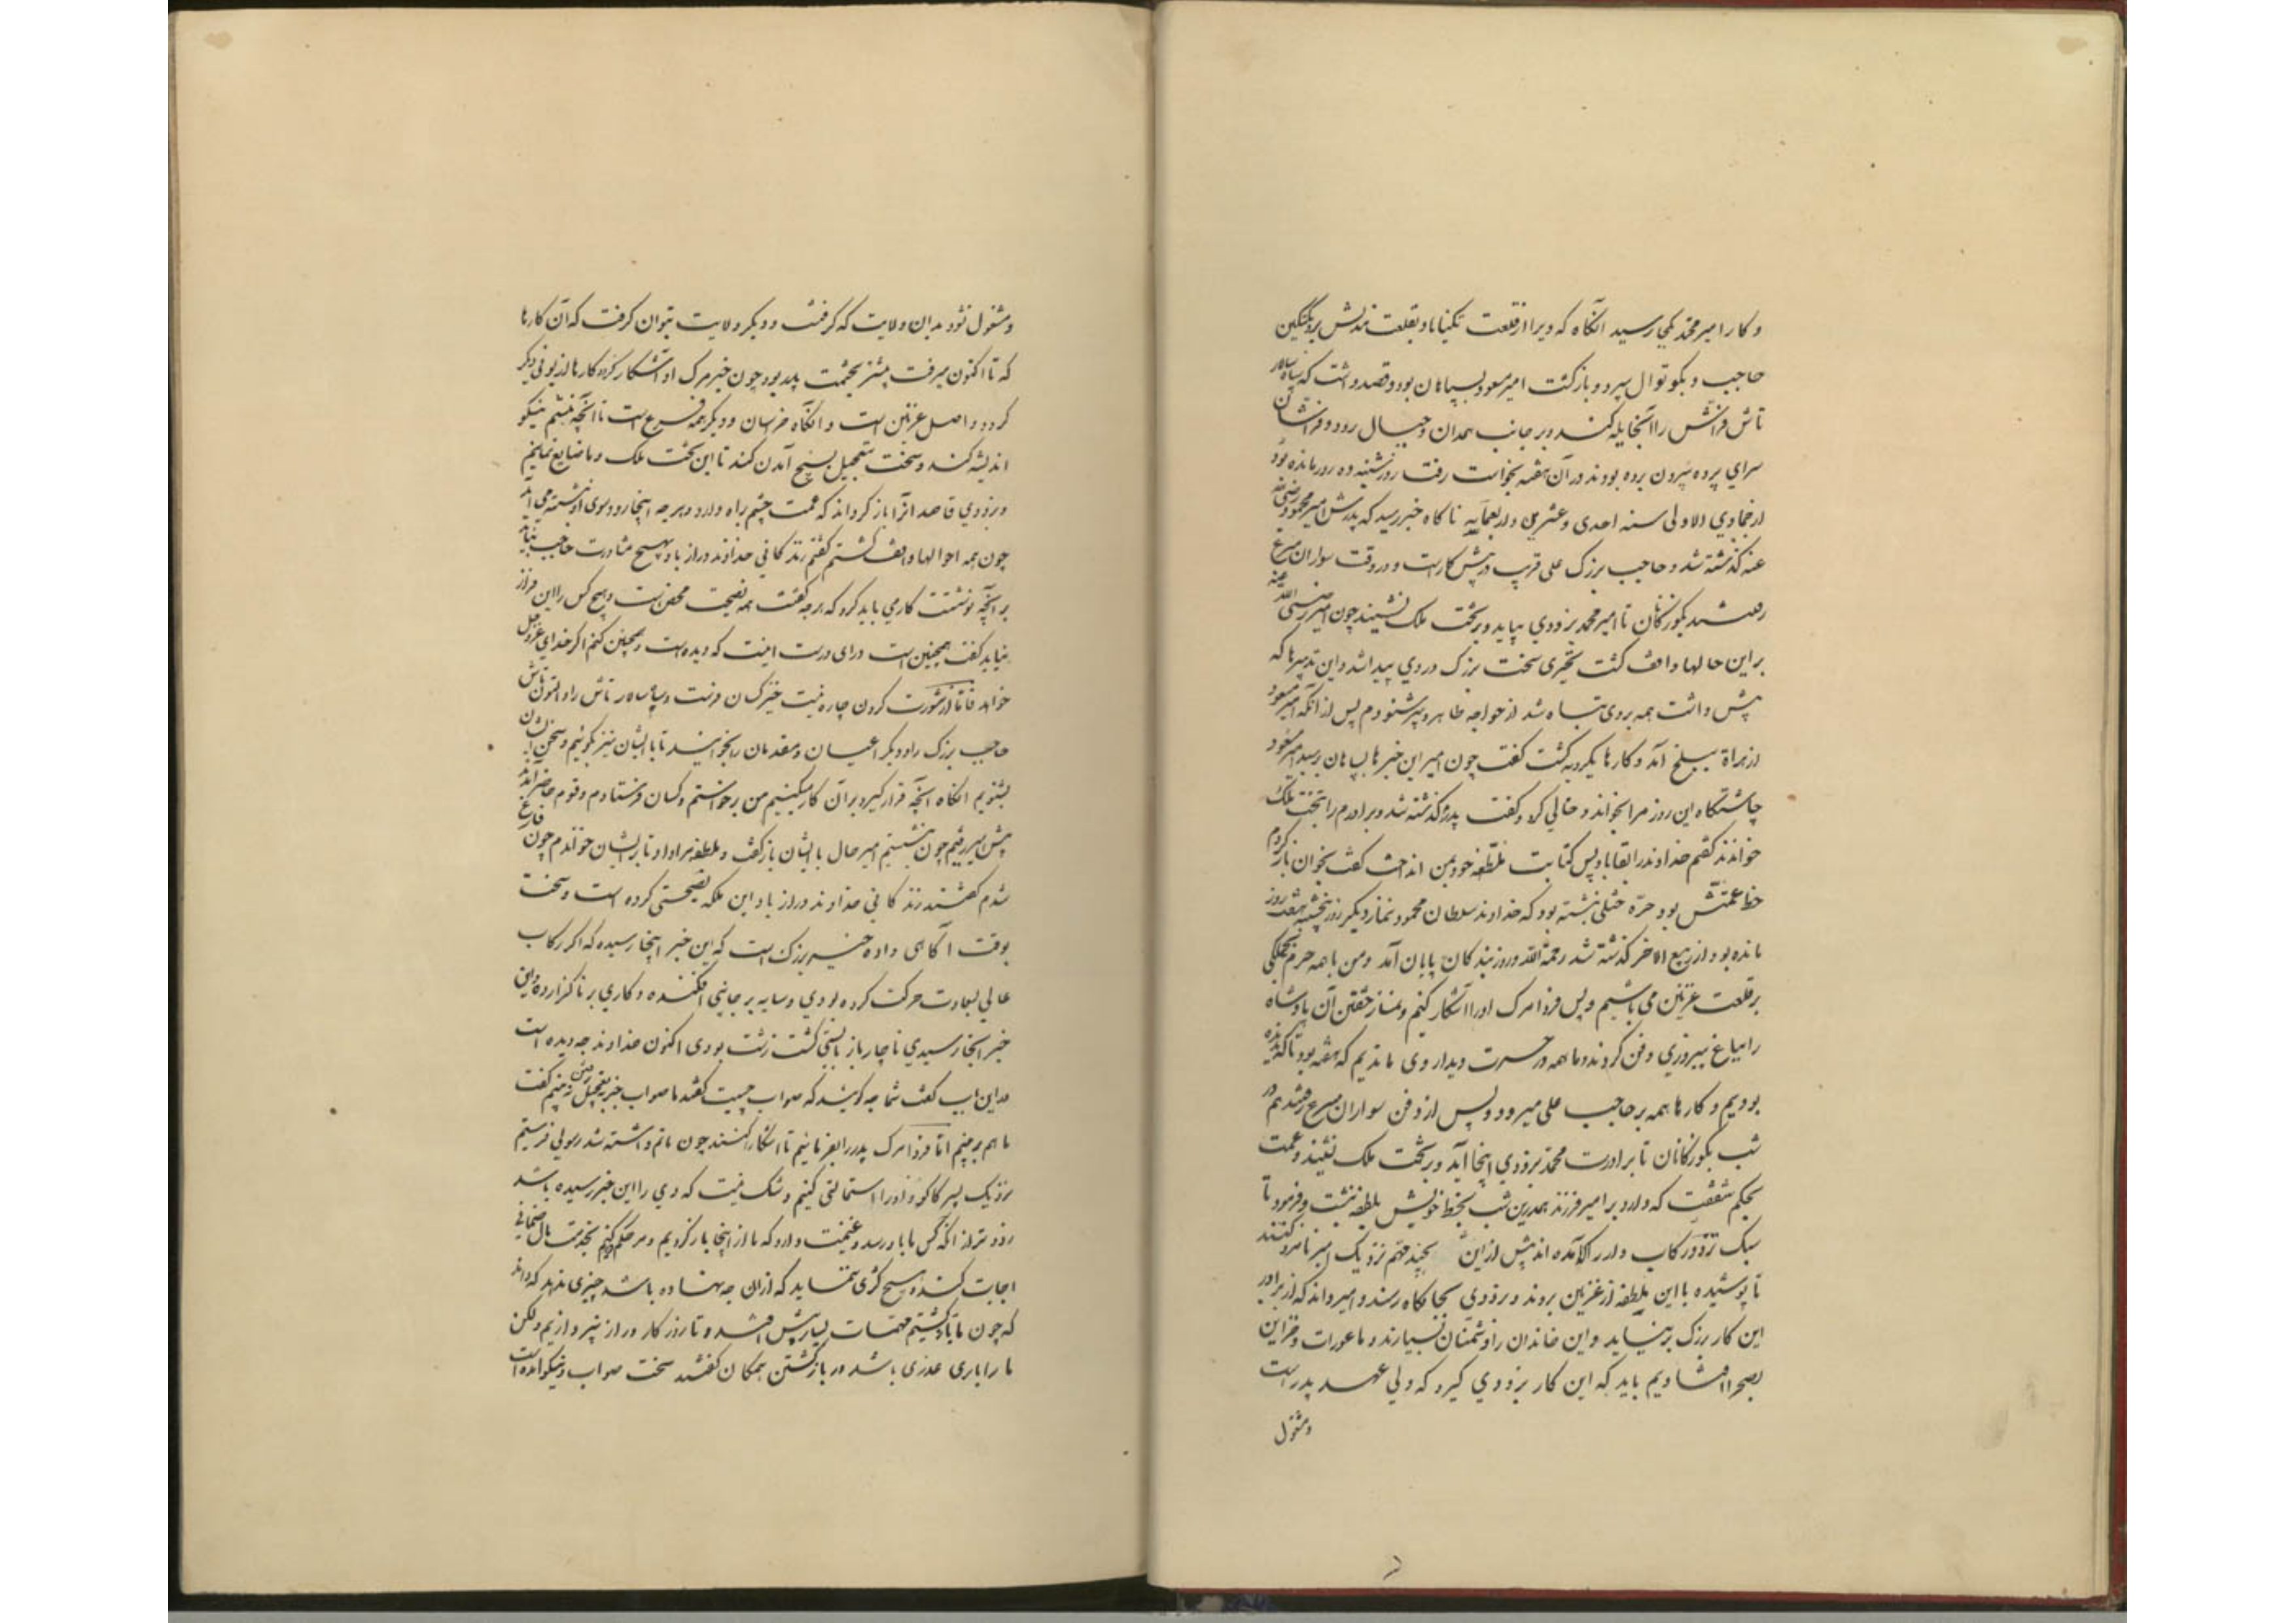 و کار امیر محمد کجا رسید آنگاه که ویرا از قلعت تکیناباد بقلعت مندیش برد بکتگین
حاجب و بکوتوال سپرد و بازگشت امیر مسعود بسپاهان بود و قصد داشت که سپاه سالار
تاش فراش را آنجا یله کند و بر جانب همدان و جبال رود و فراشان
سرای پرده بیرون برده بودند در آن هفته بخواست رفت روز شنبه ده روز مانده بود
از جمادی الاولی سنه احدی و عشرین و اربعمایه ناگاه خبر رسید که پدرش امیر محمود رضی الله
عنه گذشته شد و حاجب بزرگ علی قریب در پیش کار است و در وقت سواران مسرع
رفتند بگوزکانان تا امیر محمد بزودی بیاید و بر تخت ملک نشیند چون امیر رضی الله عنه
بر این حالها واقف گشت تحیری سخت بزرگ در وی پیدا شد و این تدبیرها که
پیش داشت همه بر وی تباه شد از خواجه طاهر دبیر شنودم پس از آنکه امیر مسعود
از هراة ببلخ آمد و کارها یکرویه گشت گفت چون امیر این خبرها بسپاهان برسید امیر مسعود
چاشتگاه این روز مرا بخواند و خالی کرد و گفت پدرم گذشته شد و برادرم را بتخت ملک
خواندند گفتم خداوند را بقا باد پس کتابت ملطفه خود بمن انداخت گفت بخوان باز کردم
خط عمتش بود حره ختلی نبشته بود که خداوند سلطان محمود نماز دیگر روز پنجشنبه هفت روز
مانده بود از ربیع الاخر گذشته شد رحمه الله و روز بندگان پایان آمد و من با همه حرم بجملگی
بر قلعت غزنین می باشیم و پس فردا مرگ او را آشکار کنیم و نماز خفتن آن پادشاه
را بباغ پیروزی دفن کردند و ما همه در حسرت دیدار وی ماندیم که هفته بود تا که ندیده
بودیم و کارها همه بر حاجب علی میرود و پس از دفن سواران مسرع رفتند هم در
شب بگوزکانان تا برادرت محمد بزودی اینجا آید و بر تخت ملک نشیند و عمت
بحکم شفقت که دارد بر امیر فرزند همدرین شب بخط خویش ملطفه نبشت و فرمود تا
سبک تر دو رکاب دار را که آمده اند پیش از این بچند مهم نزدیک امیر نامزد کنند
تا پوشیده با این ملطفه از غزنین بروند و بزودی بجایگاه رسند و امیر داند که از برادر
این کار بزرگ برنیاید و این خاندان را دشمنان بسیارند و ما عورات و خزاین
بصحرا افتادیم باید که این کار بزودی گیرد که ولی عهد پدر است
و مشغول
و مشغول نشود بدان ولایت که گرفتست و دیگر ولایت بتوان گرفت که آن کارها
که تا اکنون میرفت بیشتر بحشمت پدر بود چون خبر مرگ او آشکار گردد کارها از لونی دیگر
گردد و اصل غزنین است و آنگاه خراسان و دیگر همه فرع است تا آنچه نبشتم نیکو
اندیشه کند و سخت بتعجیل بسیج آمدن کند تا این تخت ملک و ما ضایع نمانیم
و بزودی قاصدانرا باز گرداند که عمت چشم براه دارد و هرچه اینجا رود سوی او نبشته می آید
چون همه احوالها واقف گشتم گفتم زندگانی خداوند دراز باد بهیچ مشاورت حاجب نیاید
بر آنچه نوشتست کار می باید کرد که هرچه گفتست همه نصیحت محض است و هیچ کس را این فراز
نیاید گفت همچنین است و رای درست اینست که دیده است و همچنین کنم اگر خدای عز و جل
خواهد فاما از مشورت کردن چاره نیست خیز کسان فرست و سپاه سالار تاش را و التونتاش
حاجب بزرگ را و دیگر اعیان و مقدمان را بخوانند تا با ایشان نیز بگوئیم و سخن ایشان
بشنویم آنگاه آنچه قرار گیرد بر آن کار میکنیم من برخواستم و کسان فرستادم و قوم حاضر آمدند
پیش امیر رفتیم چون بنشستیم امیر حال با ایشان بازگفت و ملطفه مرا داد تا بر ایشان خواندم چون فارغ
شدم گفتند زندگانی خداوند دراز باد این ملکه نصیحتی کرده است و سخت
بوقت آگاهی داده خیر بزرگ است که این خبر اینجا رسیده که اگر رکاب
عالی بسعادت حرکت کرده بودی و سایه بر جانبی افکنده و کاری برناگزارده و این
خبر آنجا رسیدی ناچار باز بایستی گشت زشت بودی اکنون خداوند چه دیده است
در این باب گفت شما چه گوئید که صواب چیست گفتند ما صواب جز بتعجیل رفتن نبینیم گفت
ما هم برینیم اما فردا مرگ پدر را بفرمائیم تا آشکارا کنند چون ماتم داشته شد رسولی فرستیم
نزدیک پسر کاکو و او را استمالتی کنیم و شک نیست که وی را این خبر رسیده باشد
زودتر از آنکه کس ما با و رسد و غنیمت دارد که ما از اینجا بازگردیم و هر حکم کنیم بخدمت مال ضمانی
اجابت کند و هیچ کژی ننماید که از آن چه نهاده باشد چیزی ندهد که داند
که چون ما بازگشتیم مهمات بسیار پیش افتد و تا روزگار دراز نپردازیم ولکن
ما را باری عذری باشد در بازگشتن همگان گفتند سخت صواب و نیکو آمده است